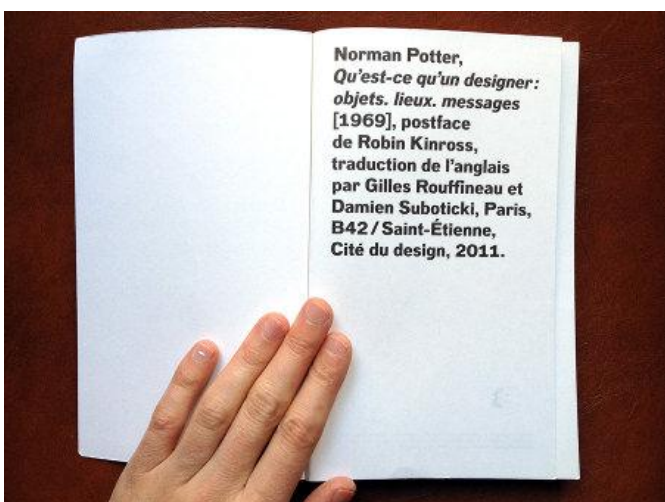 Norman Potter,
Qu'est-ce qu'un designer :
objets. lieux. messages
[1969], postface
de Robin Kinross,
traduction de l'anglais
par Gilles Rouffineau et
Damien Suboticki, Paris,
B42 / Saint-Étienne,
Cité du design, 2011.